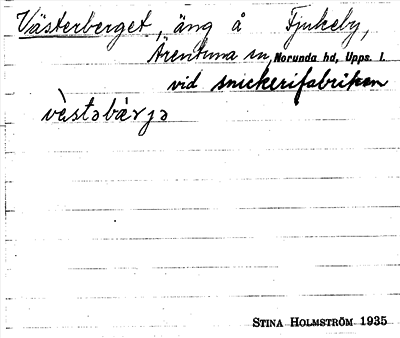 Västerberget, äng å Fjukeby,
Ärentuna sn, Norunda hd, Upps. l.
vid snickerifabriken
vàstəbàrjə
STINA HOLMSTRÖM 1935